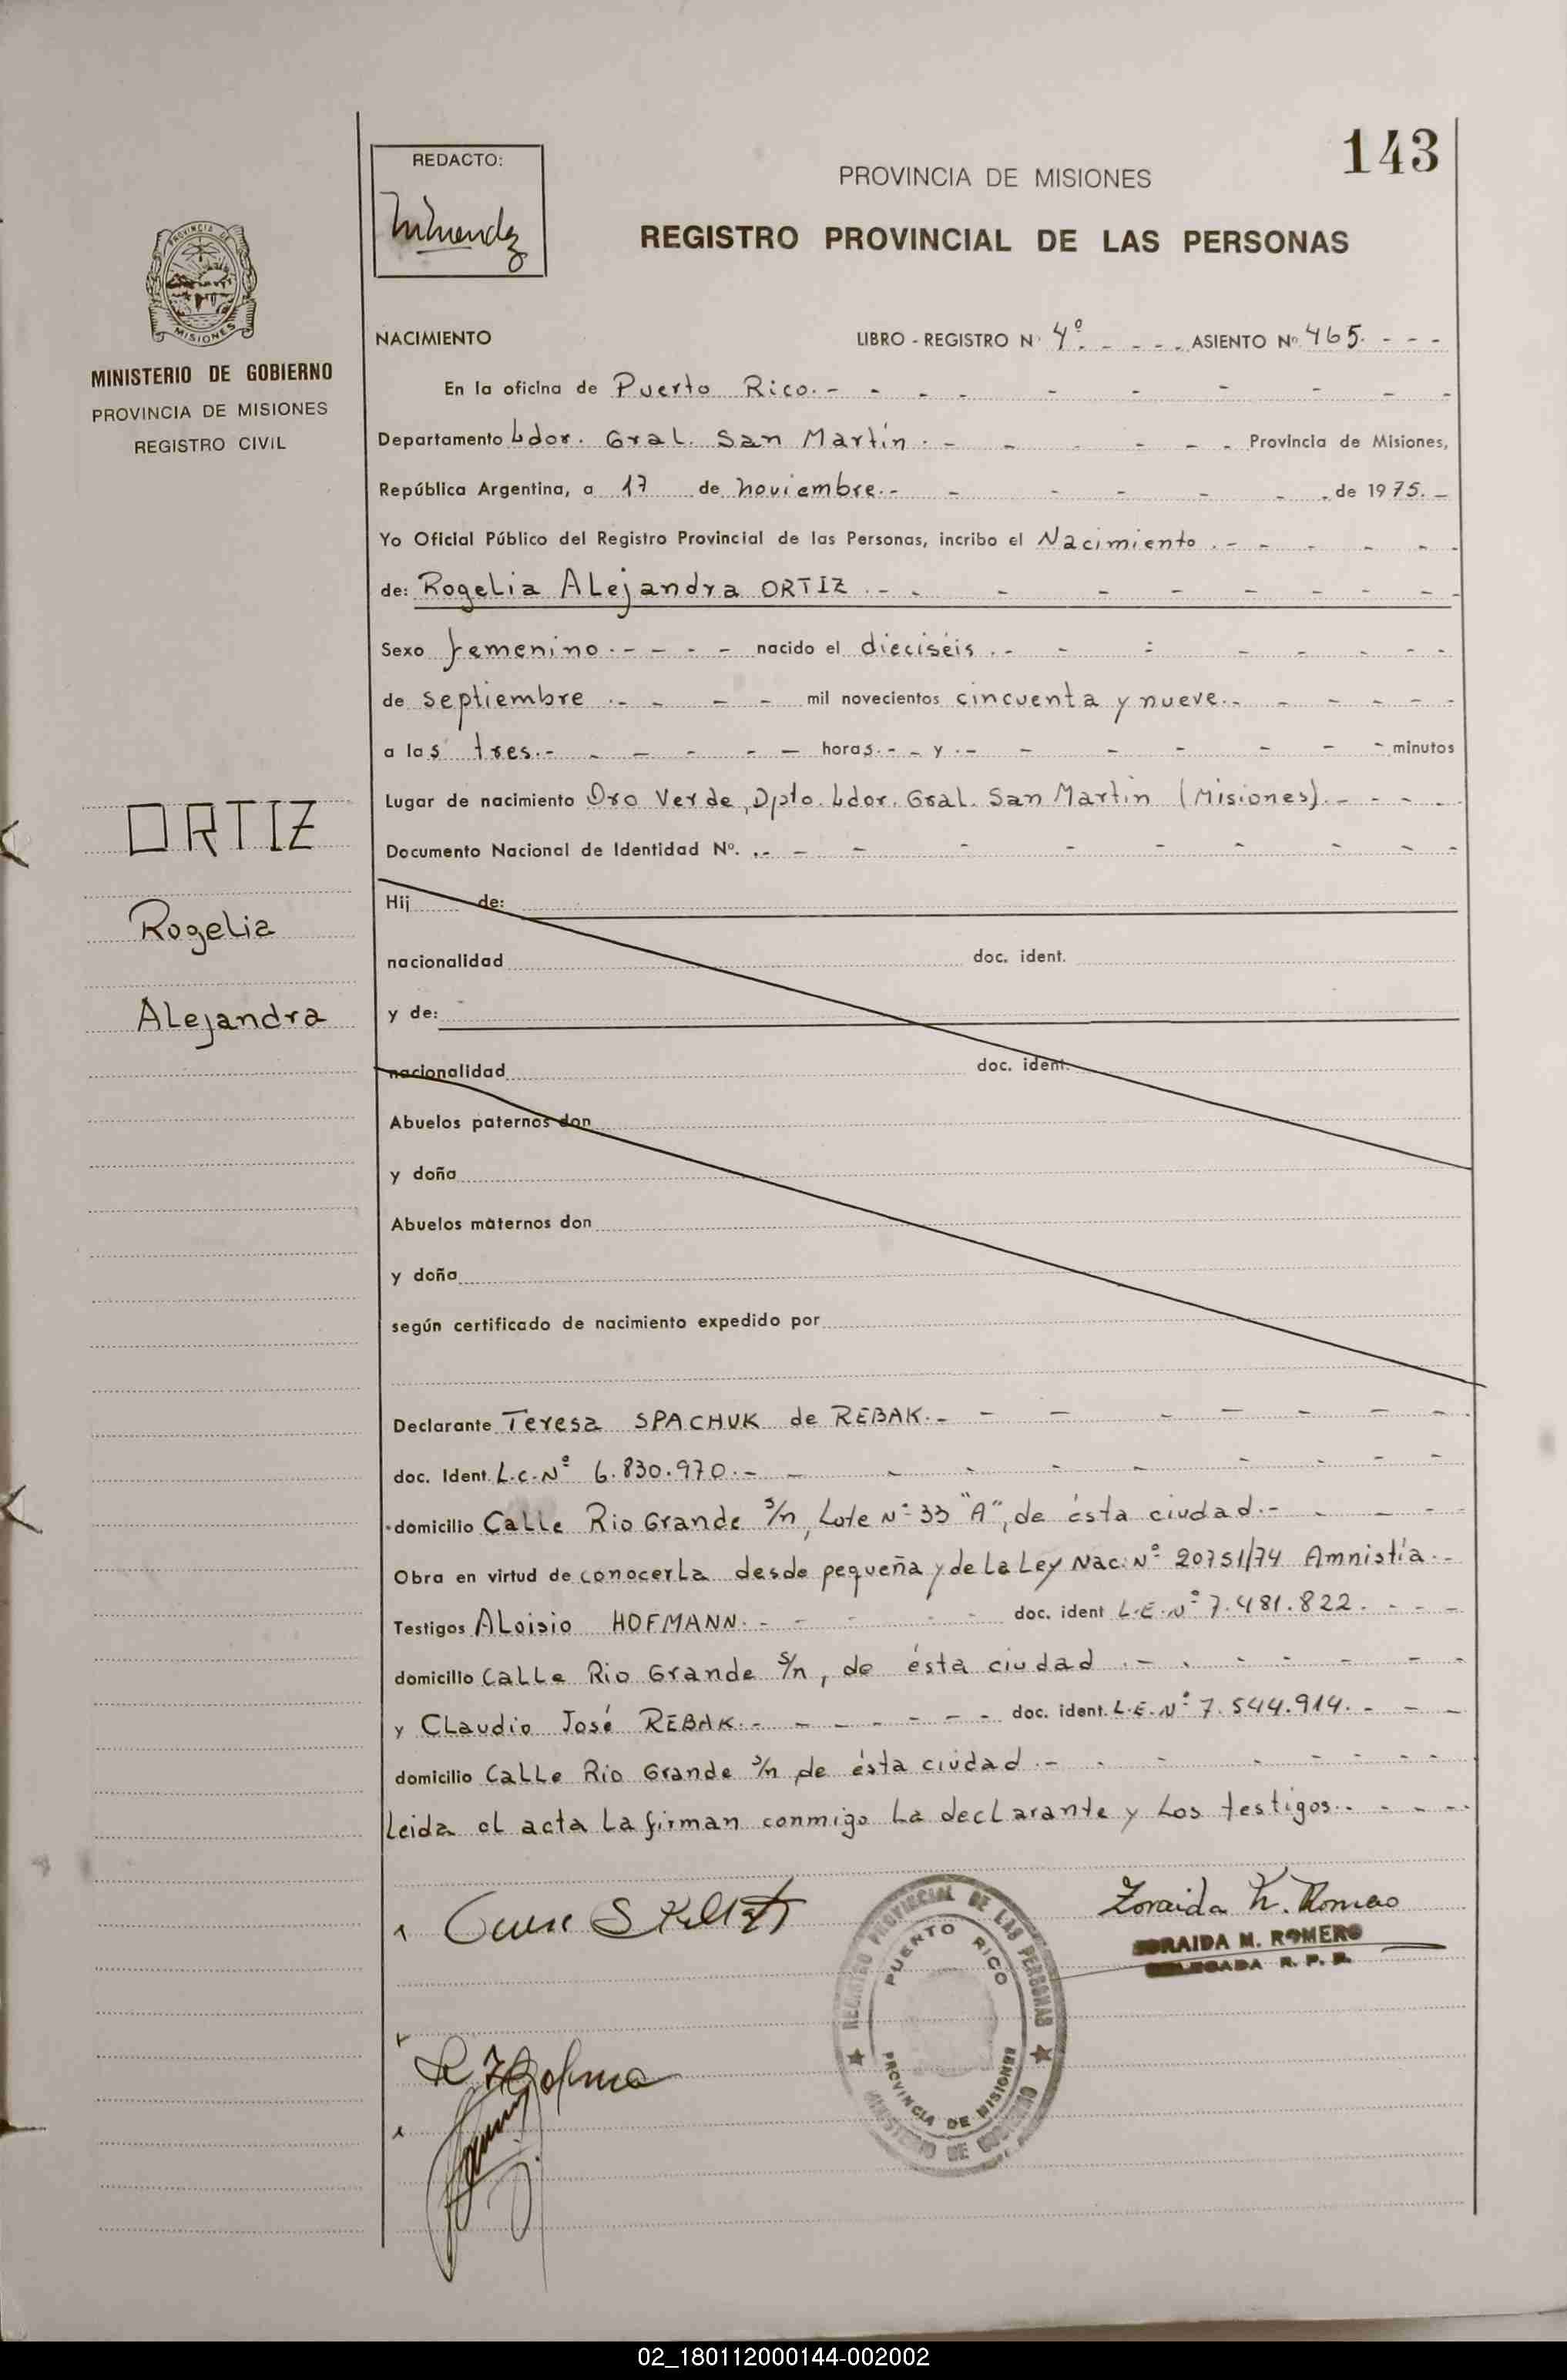 143
REDACTO:
PROVINCIA DE MISIONES
REGISTRO PROVINCIAL DE LAS PERSONAS
PROVINCIA DE
MISIONES
MINISTERIO DE GOBIERNO
PROVINCIA DE MISIONES
REGISTRO CIVIL
NACIMIENTO LIBRO - REGISTRO Nº 4º. - - - - ASIENTO Nº 465. - - -
En la oficina de Puerto Rico. - - - - - - - - - -
Departamento Ldor. Gral. San Martín. - - - - - - Provincia de Misiones,
República Argentina, a 17 de noviembre. - - - - - - - de 1975. -
Yo Oficial Público del Registro Provincial de las Personas, incribo el Nacimiento. - - - - - -
de: Rogelia Alejandra ORTIZ. - - - - - - - - -
Sexo femenino. - - - - nacido el dieciséis. - - - - - - - -
de septiembre. - - - - mil novecientos cincuenta y nueve. - - - - - -
a las tres. - - - - - - horas. - - y. - - - - - - - minutos
Lugar de nacimiento Oro Verde, Dpto. Ldor. Gral. San Martín (Misiones). - - - -
Documento Nacional de Identidad Nº. . - - - - - - - - - -
ORTIZ
Rogelia
Alejandra
Hij de:
nacionalidad doc. ident.
y de:
nacionalidad doc. ident.
Abuelos paternos don
y doña
Abuelos maternos don
y doña
según certificado de nacimiento expedido por
Declarante Teresa SPACHUK de REBAK. - - - - - - - -
doc. Ident. L.C. Nº 6.830.970. - - - - - - - - - -
domicilio Calle Rio Grande s/n, Lote Nº 33 "A", de ésta ciudad. - - - -
Obra en virtud de conocerla desde pequeña y de la Ley Nac. Nº 20751/74 Amnistía. -
Testigos Aloisio HOFMANN. - - - - - doc. ident L.E. Nº 7.481.822. - - -
domicilio Calle Rio Grande s/n, de ésta ciudad. - - - - - - -
y Claudio José REBAK. - - - - - - - doc. ident. L.E. Nº 7.544.914. - - -
domicilio Calle Rio Grande s/n de ésta ciudad. - - - - - - -
Leida el acta la firman conmigo la declarante y los testigos. - - - -
Zoraida M. Romero
ZORAIDA M. ROMERO
DELEGADA R. P. P.
REGISTRO PROVINCIAL DE LAS PERSONAS
PUERTO RICO
PROVINCIA DE MISIONES
MINISTERIO DE GOBIERNO
02_180112000144-002002